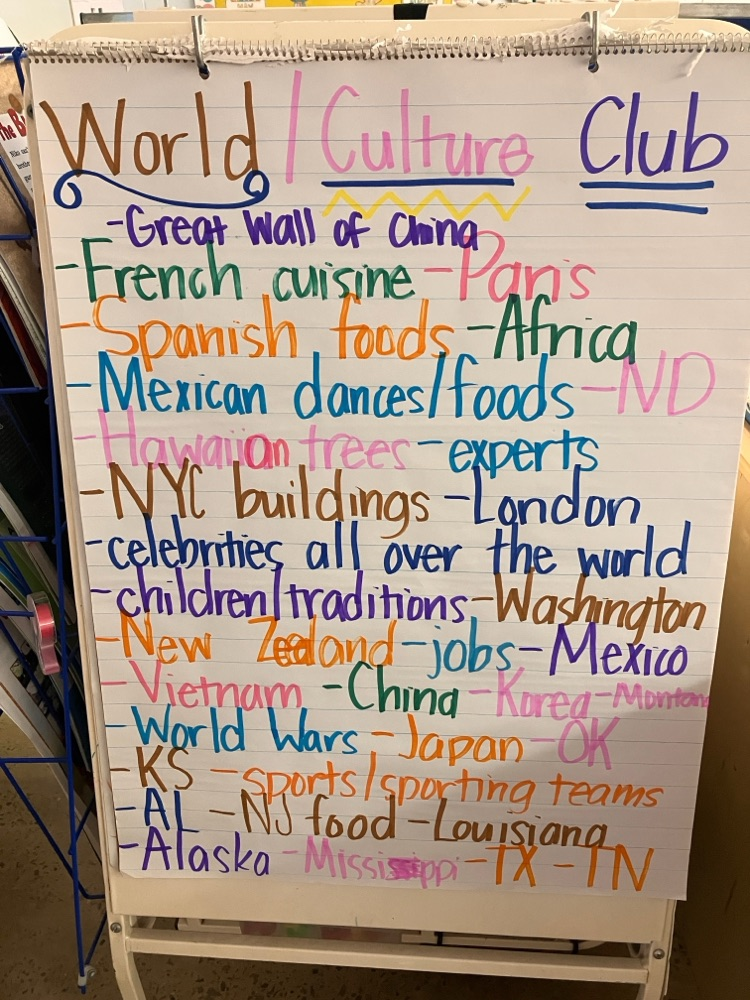 World / Culture Club
-Great Wall of China
-French cuisine -Paris
-Spanish foods -Africa
-Mexican dances/foods -ND
-Hawaiian trees -experts
-NYC buildings -London
-celebrities all over the world
-children/traditions -Washington
-New Zealand -jobs -Mexico
-Vietnam -China -Korea -Montana
-World Wars -Japan -OK
-KS -sports/sporting teams
-AL -NJ food -Louisiana
-Alaska -Mississippi -TX -TN